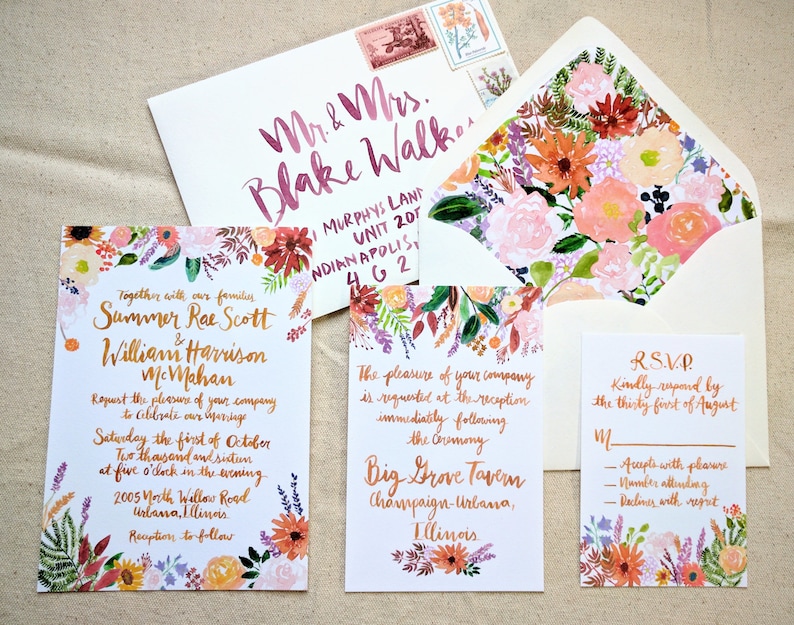 Mr. & Mrs.
Blake Walker
MURPHYS LAN
UNIT 20
NDIANAPOLIS,
4 6 2
Together with our families
Summer Rae Scott
&
William Harrison
McMahan
Request the pleasure of your company
to Celebrate our Marriage
Saturday the first of October
Two thousand and sixteen
at five o'clock in the evening
2005 North Willow Road
Urbana, Illinois
Reception to follow
The pleasure of your company
is requested at the reception
immediately following
the Ceremony
Big Grove Tavern
Champaign-Urbana,
Illinois
R.S.V.P.
Kindly respond by
the thirty first of August
M
Accepts with pleasure
Number attending
Declines with regret